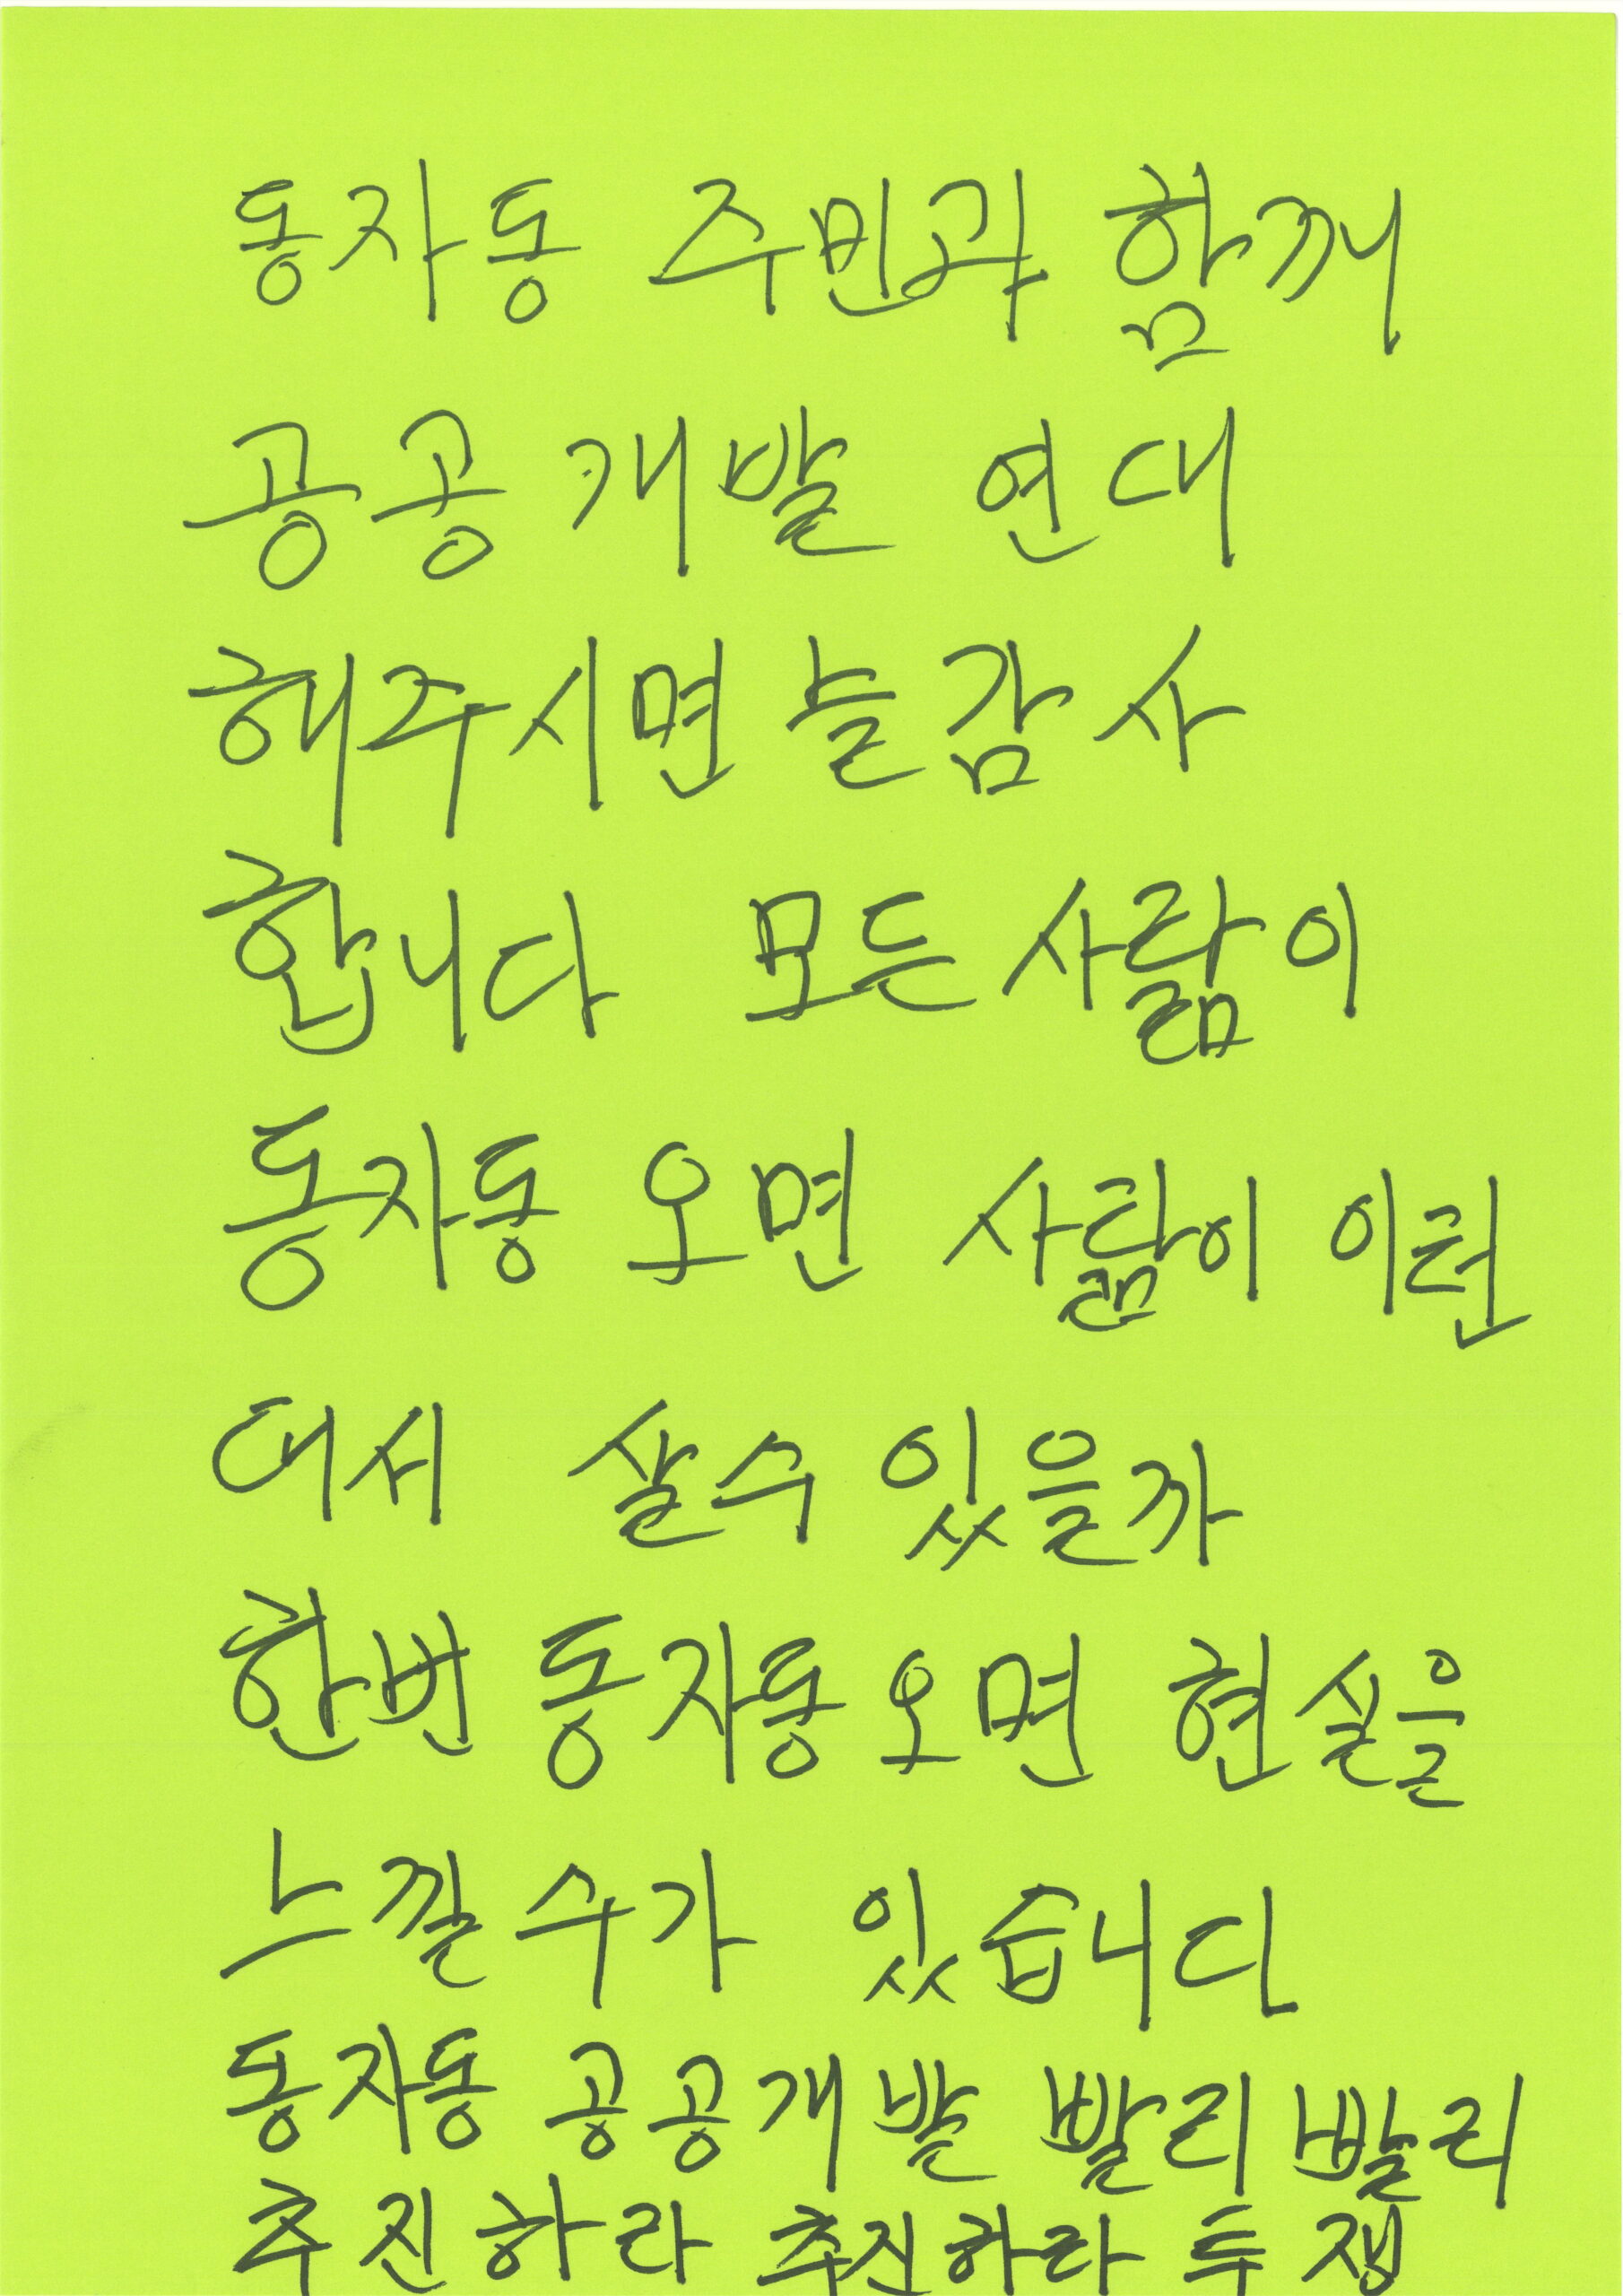 동자동 주민과 함께
공공개발 연대
해주시면 늘감사
합니다 모든 사람이
동자동 오면 사람이 이런
데서 살수 있을까
한번 동자동오면 현실을
느낄수가 있습니다
동자동 공공개발 빨리빨리
추진하라 추진하라 투쟁